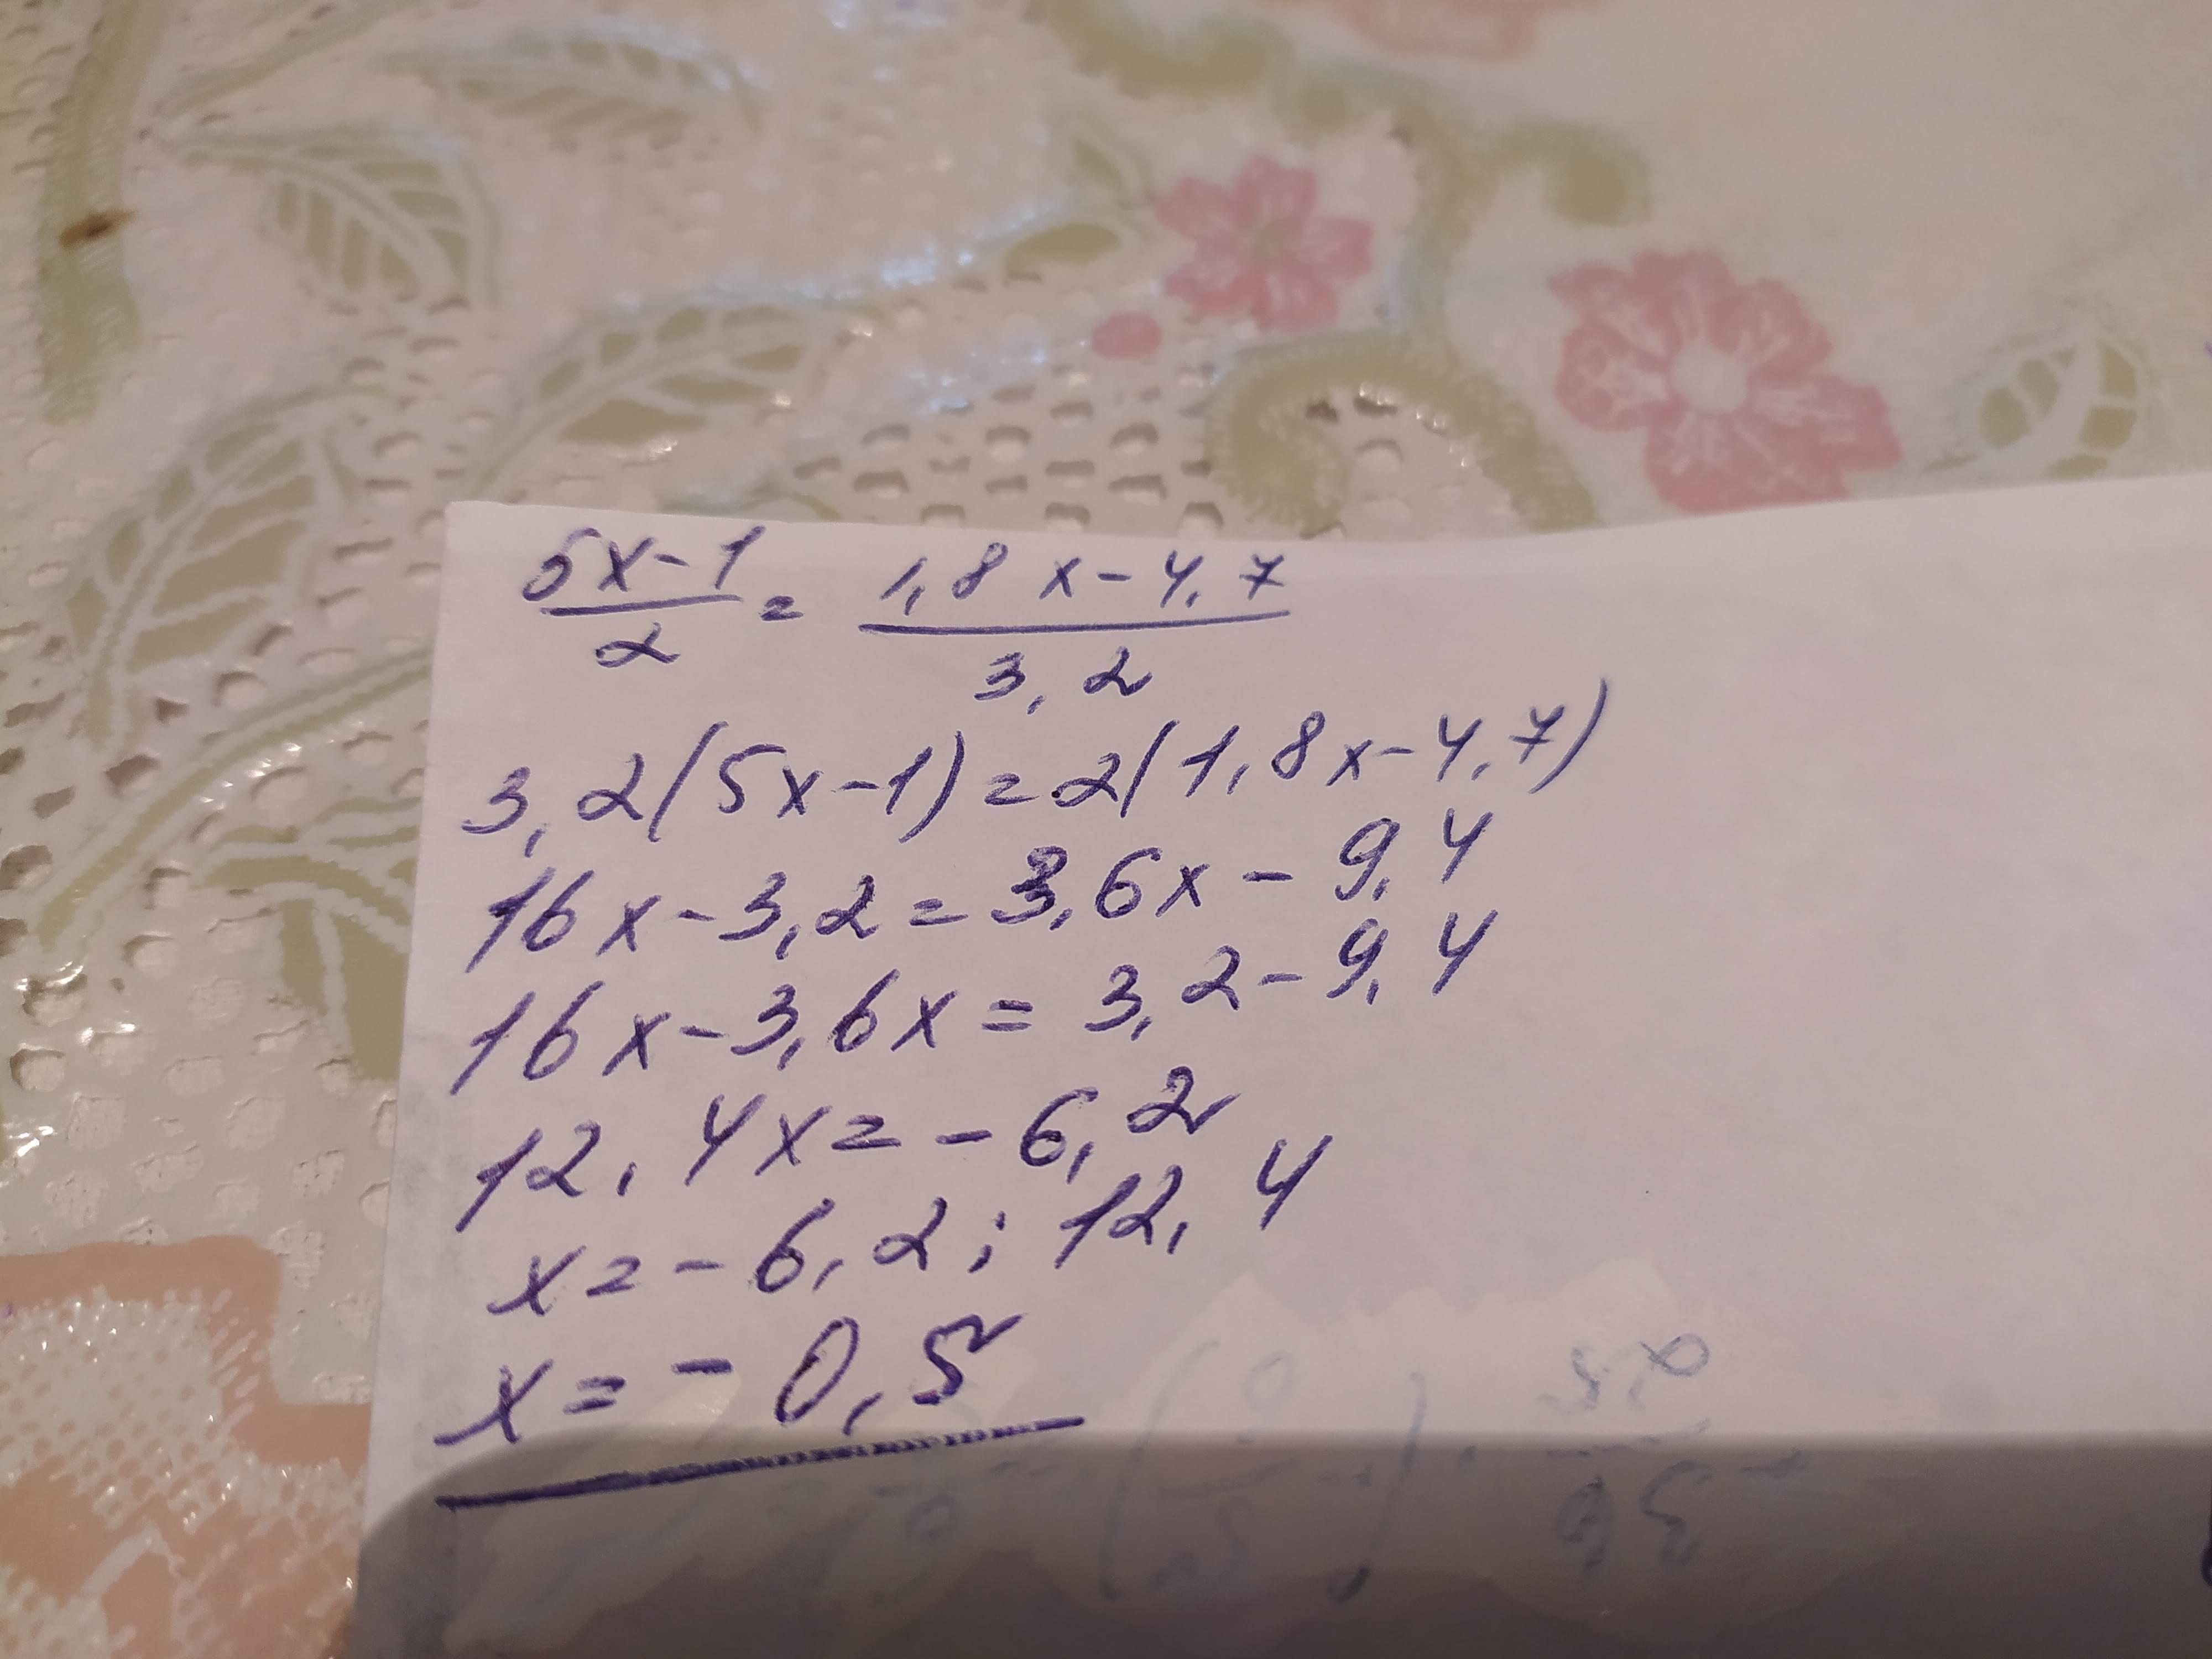 5x-1/2 = 1,8x-4,7/3,2
3,2(5x-1)=2(1,8x-4,7)
16x-3,2=3,6x-9,4
16x-3,6x=3,2-9,4
12,4x=-6,2
x=-6,2:12,4
x=-0,5